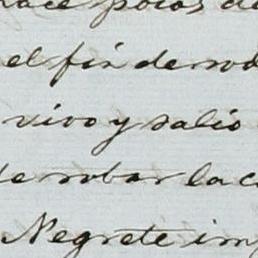 hace pocos d
el fin de rod
vivo y salio
de robar la c
Negrete im